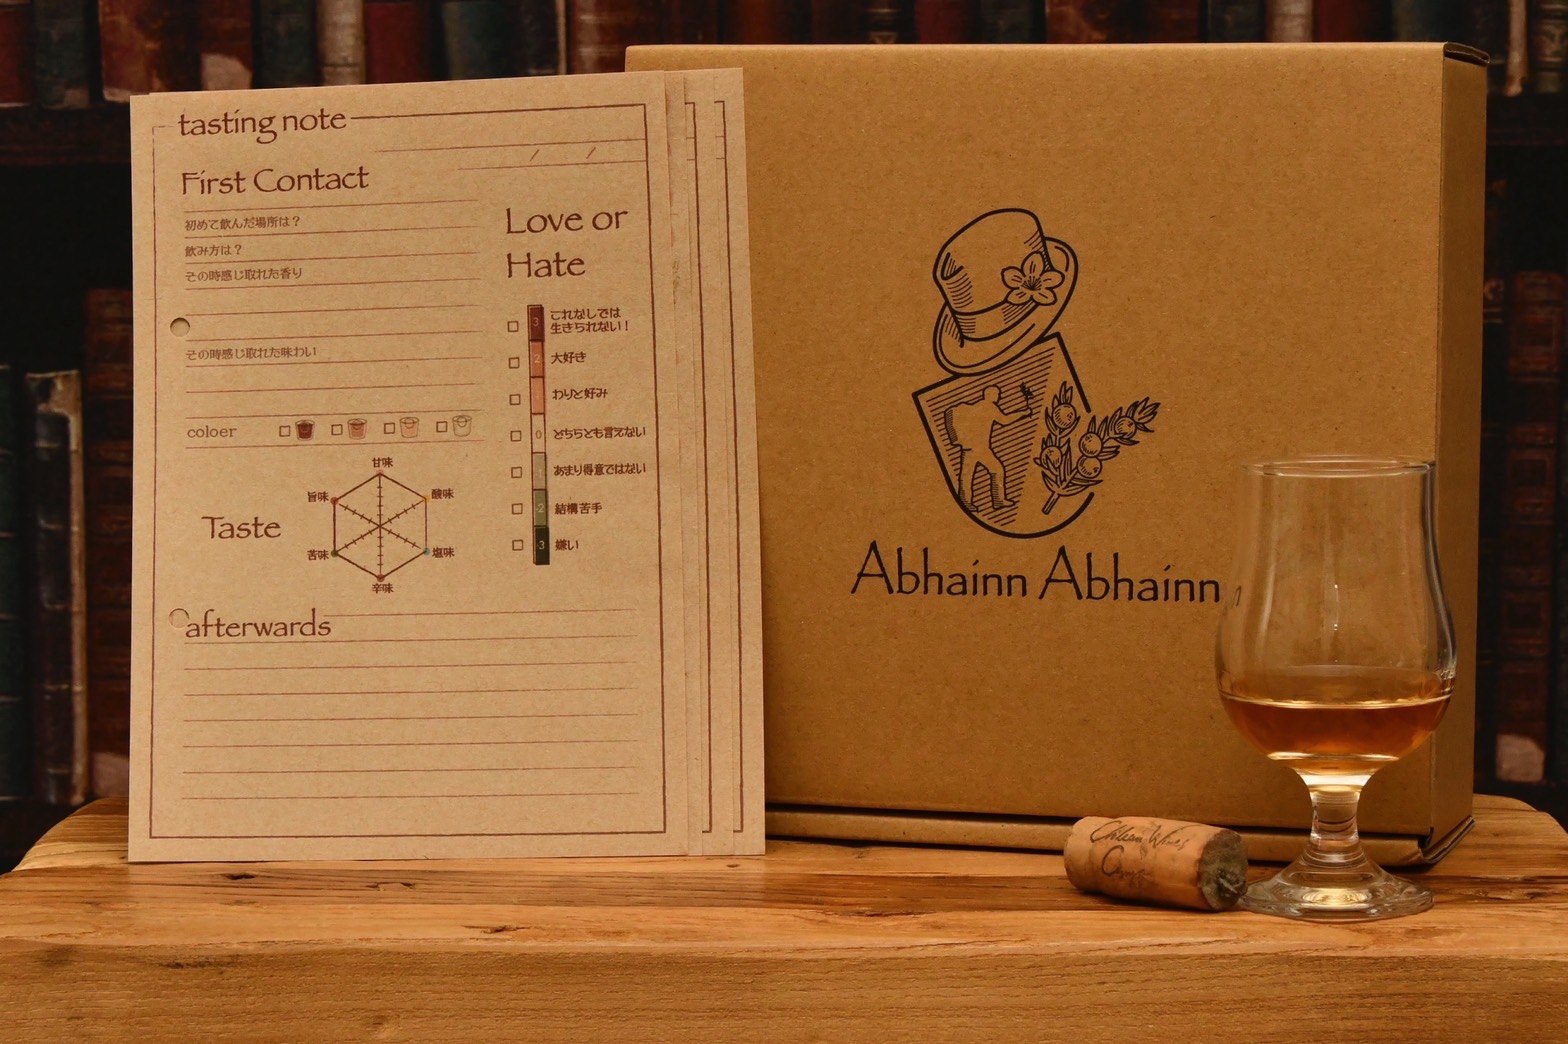 tasting note
First Contact
初めて飲んだ場所は?
飲み方は?
その時感じ取れた香り
その時感じ取れた味わい
coloer
Taste
甘味
酸味
塩味
辛味
苦味
旨味
Love or
Hate
3 これなしでは
生きられない!
2 大好き
わりと好み
0 どちらとも言えない
あまり得意ではない
2 結構苦手
3 嫌い
afterwards
Abhainn Abhainn